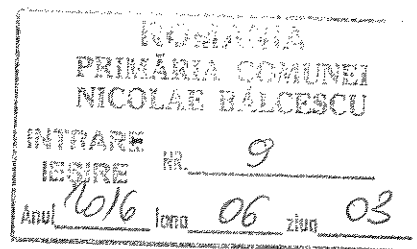 ROMÂNIA
PRIMĂRIA COMUNEI
NICOLAE BĂLCESCU
INTRARE
IEȘIRE NR. 9
Anul 2016 luna 06 ziua 03